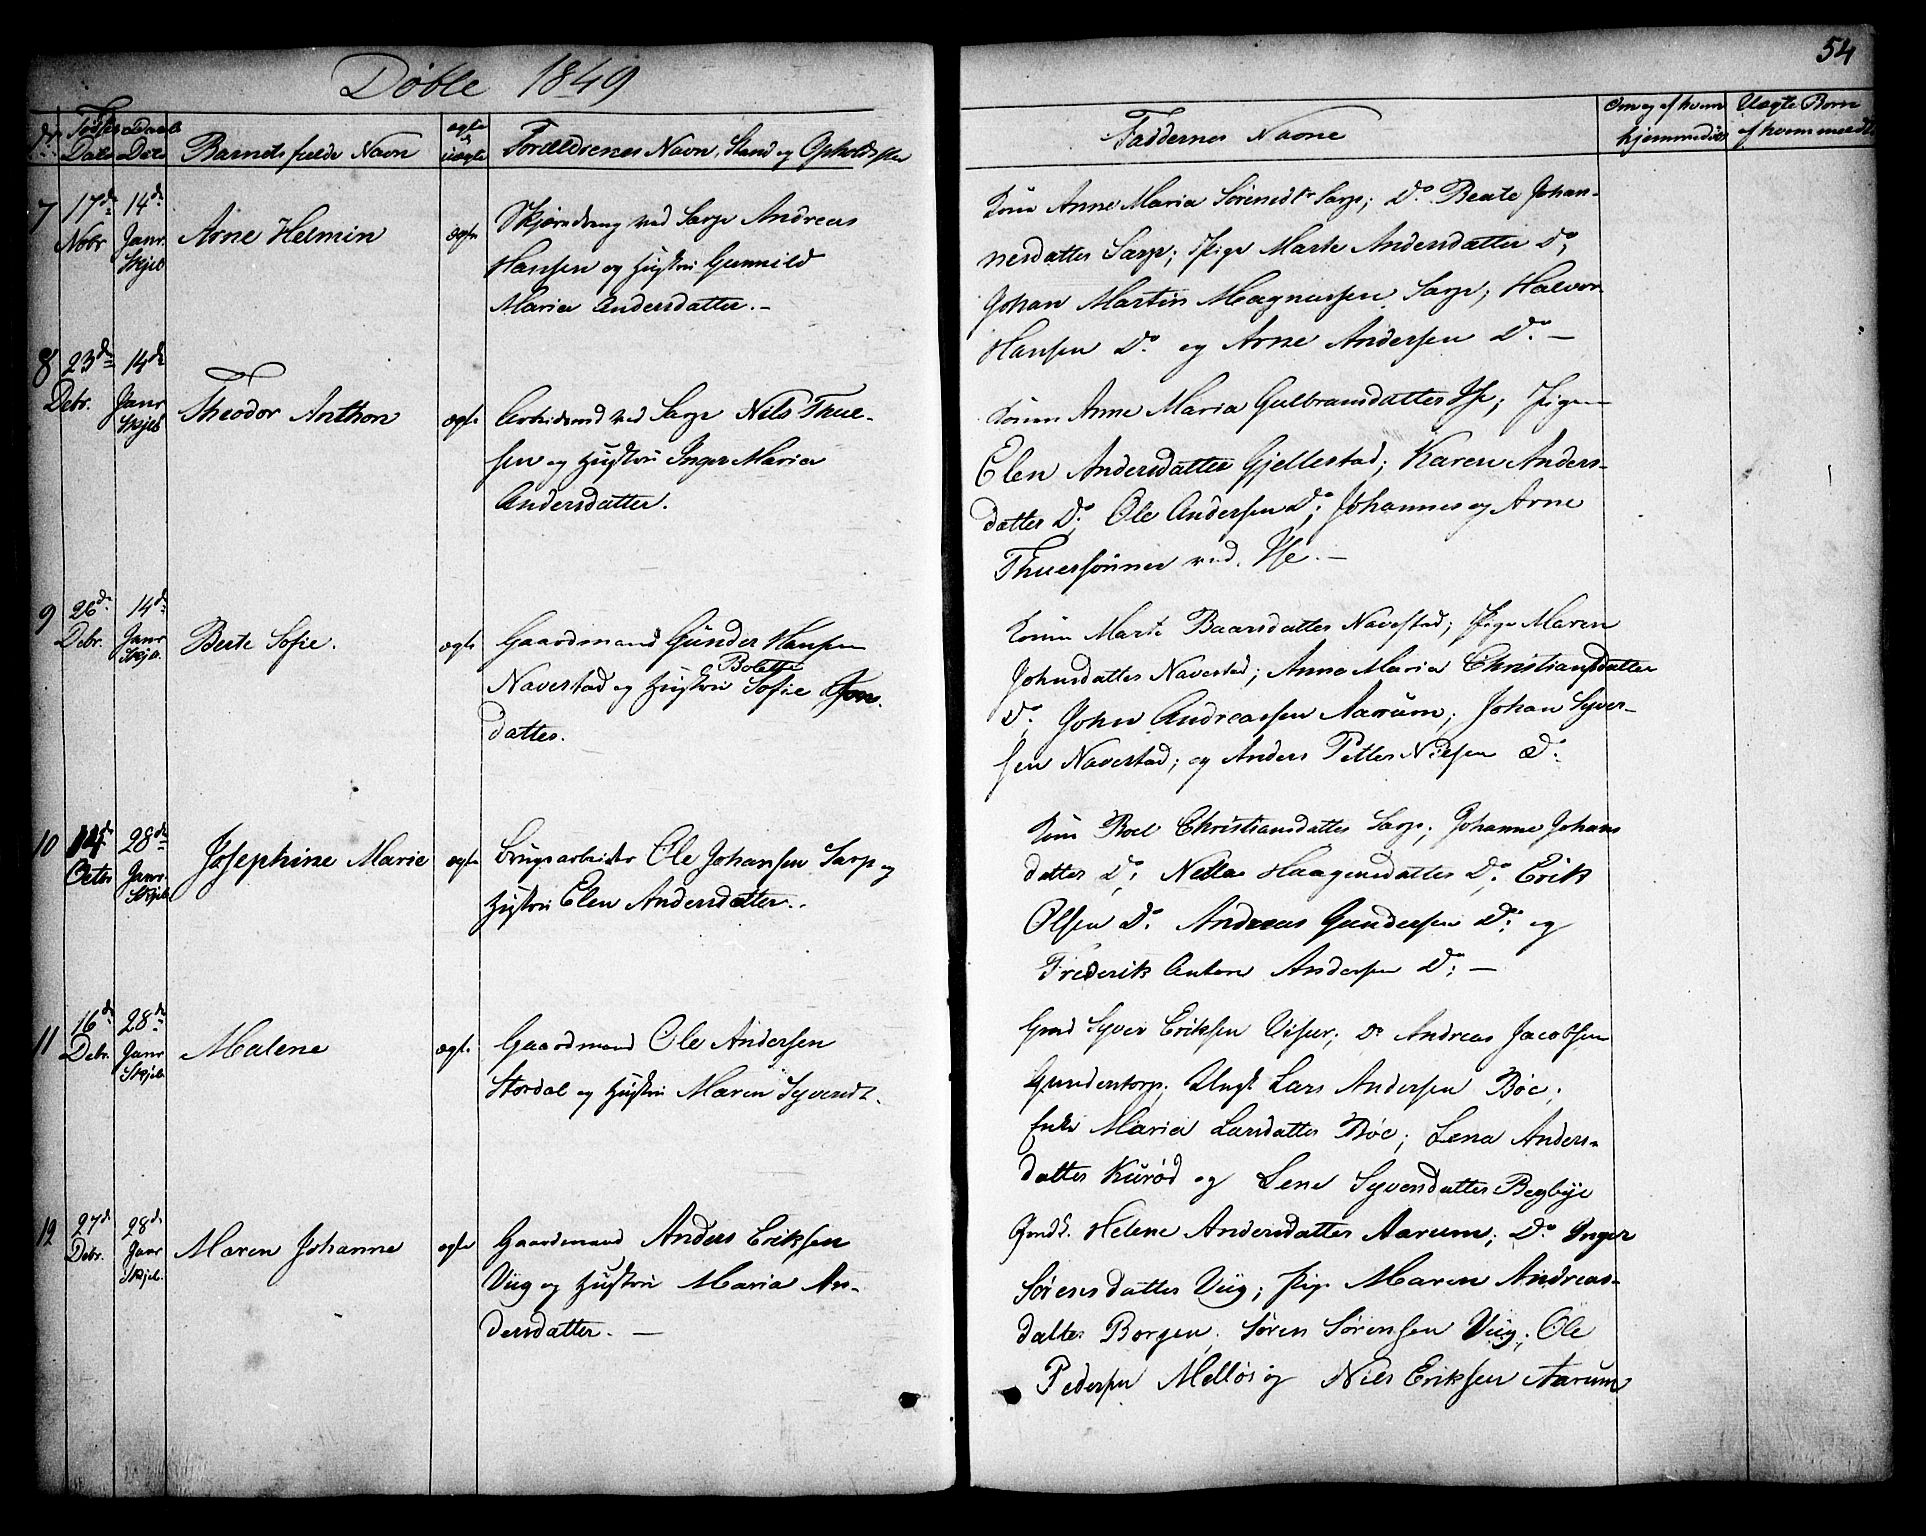 54
Døbte 1849
Nr. Fødsels Dato Daabs Dato Barnets fulde Navn ægte el. uægte Forældrenes Navn, Stand og Opholdssted
Faddernes Navne
Om og af hvem hjemmedøbt
Uægte Børn af hvem meldt
7 17de Nobr 14de Janr Skjeb
Arne Helmin
ægte
ved Sarp Andreas
Hansen og Hustru Gunnild
Maria Andersdatter.-
Kone Anne Maria Sørensdtr Sarp; Do Beate Johan-
nesdatter Sarp; Pige Marte Andersdatter Do;
Johan Martin Magnussen Sarp; Halvor
Hansen Do og Arne Andersen Do -
8 23de Debr. 14de Janr Skjeb
Theodor Anthon
ægte
Arbeidsmd ved Sarp Nils Thue-
sen og Hustru Inger Maria
Andersdatter.
Konen Anne Maria Gulbrandsdatter Ise; Pigen
Elen Andersdatter Gjellestad; Karen Anders-
datter Do; Ole Andersen Do; Johannes og Arne
Thuesønner ved. Ise. -
9 26de Debr. 14de Janr Skjeb.
Berte Sofie.
ægte
Gaardmand Gunder Hansen
Bolette
Navestad og Hustru Sofie Jon
datter.
Konen Marte Baarsdatter Navestad; Pige Maren
Johnsdatter Navestad; Anne Maria Christiansdatter
Do; John Andreassen Aarum; Johan Syver-
sen Navestad; og Anders Petter Nilsen Do.
10 14de Octbr 28de Janr Skjeb
Josephine Marie
ægte
Brugsarbeider Ole Johansen Sarp og
Hustru Elen Andersdatter..
Kone Boel Christiansdatter Sarp; Johanne Johans
datter Do; Nella Haagensdatter Do; Erik
Olsen Do. Andreas Gundersen Do; og
Frederik Anton Andersen Do; -
11 16de Debr. 28de Janr Skjeb
Malene
ægte
Gaardmand Ole Andersen
Stordal og Hustru Maren Syversdt.
Gmd Syver Eriksen Visur; Do Andreas Jacobsen
Gunderstorp; Ungk Lars Andersen Bøe;
Enke Maria Larsdatter Bøe; Lena Anders-
datter Kurød og Lene Syversdatter Begbye
12 27de Debr. 28de Janr Skjeb.
Maren Johanne
ægte
Gaardmand Anders Eriksen
Viig og Hustru Maria An-
dersdatter. -
Gmdk. Helene Andersdatter Aarum; Do Inger
Sørensdatter Viig; Pige Maren Andreas-
datter Borgen; Søren Sørensen Viig; Ole
Pedersen Melløs og Nils Eriksen Aarum